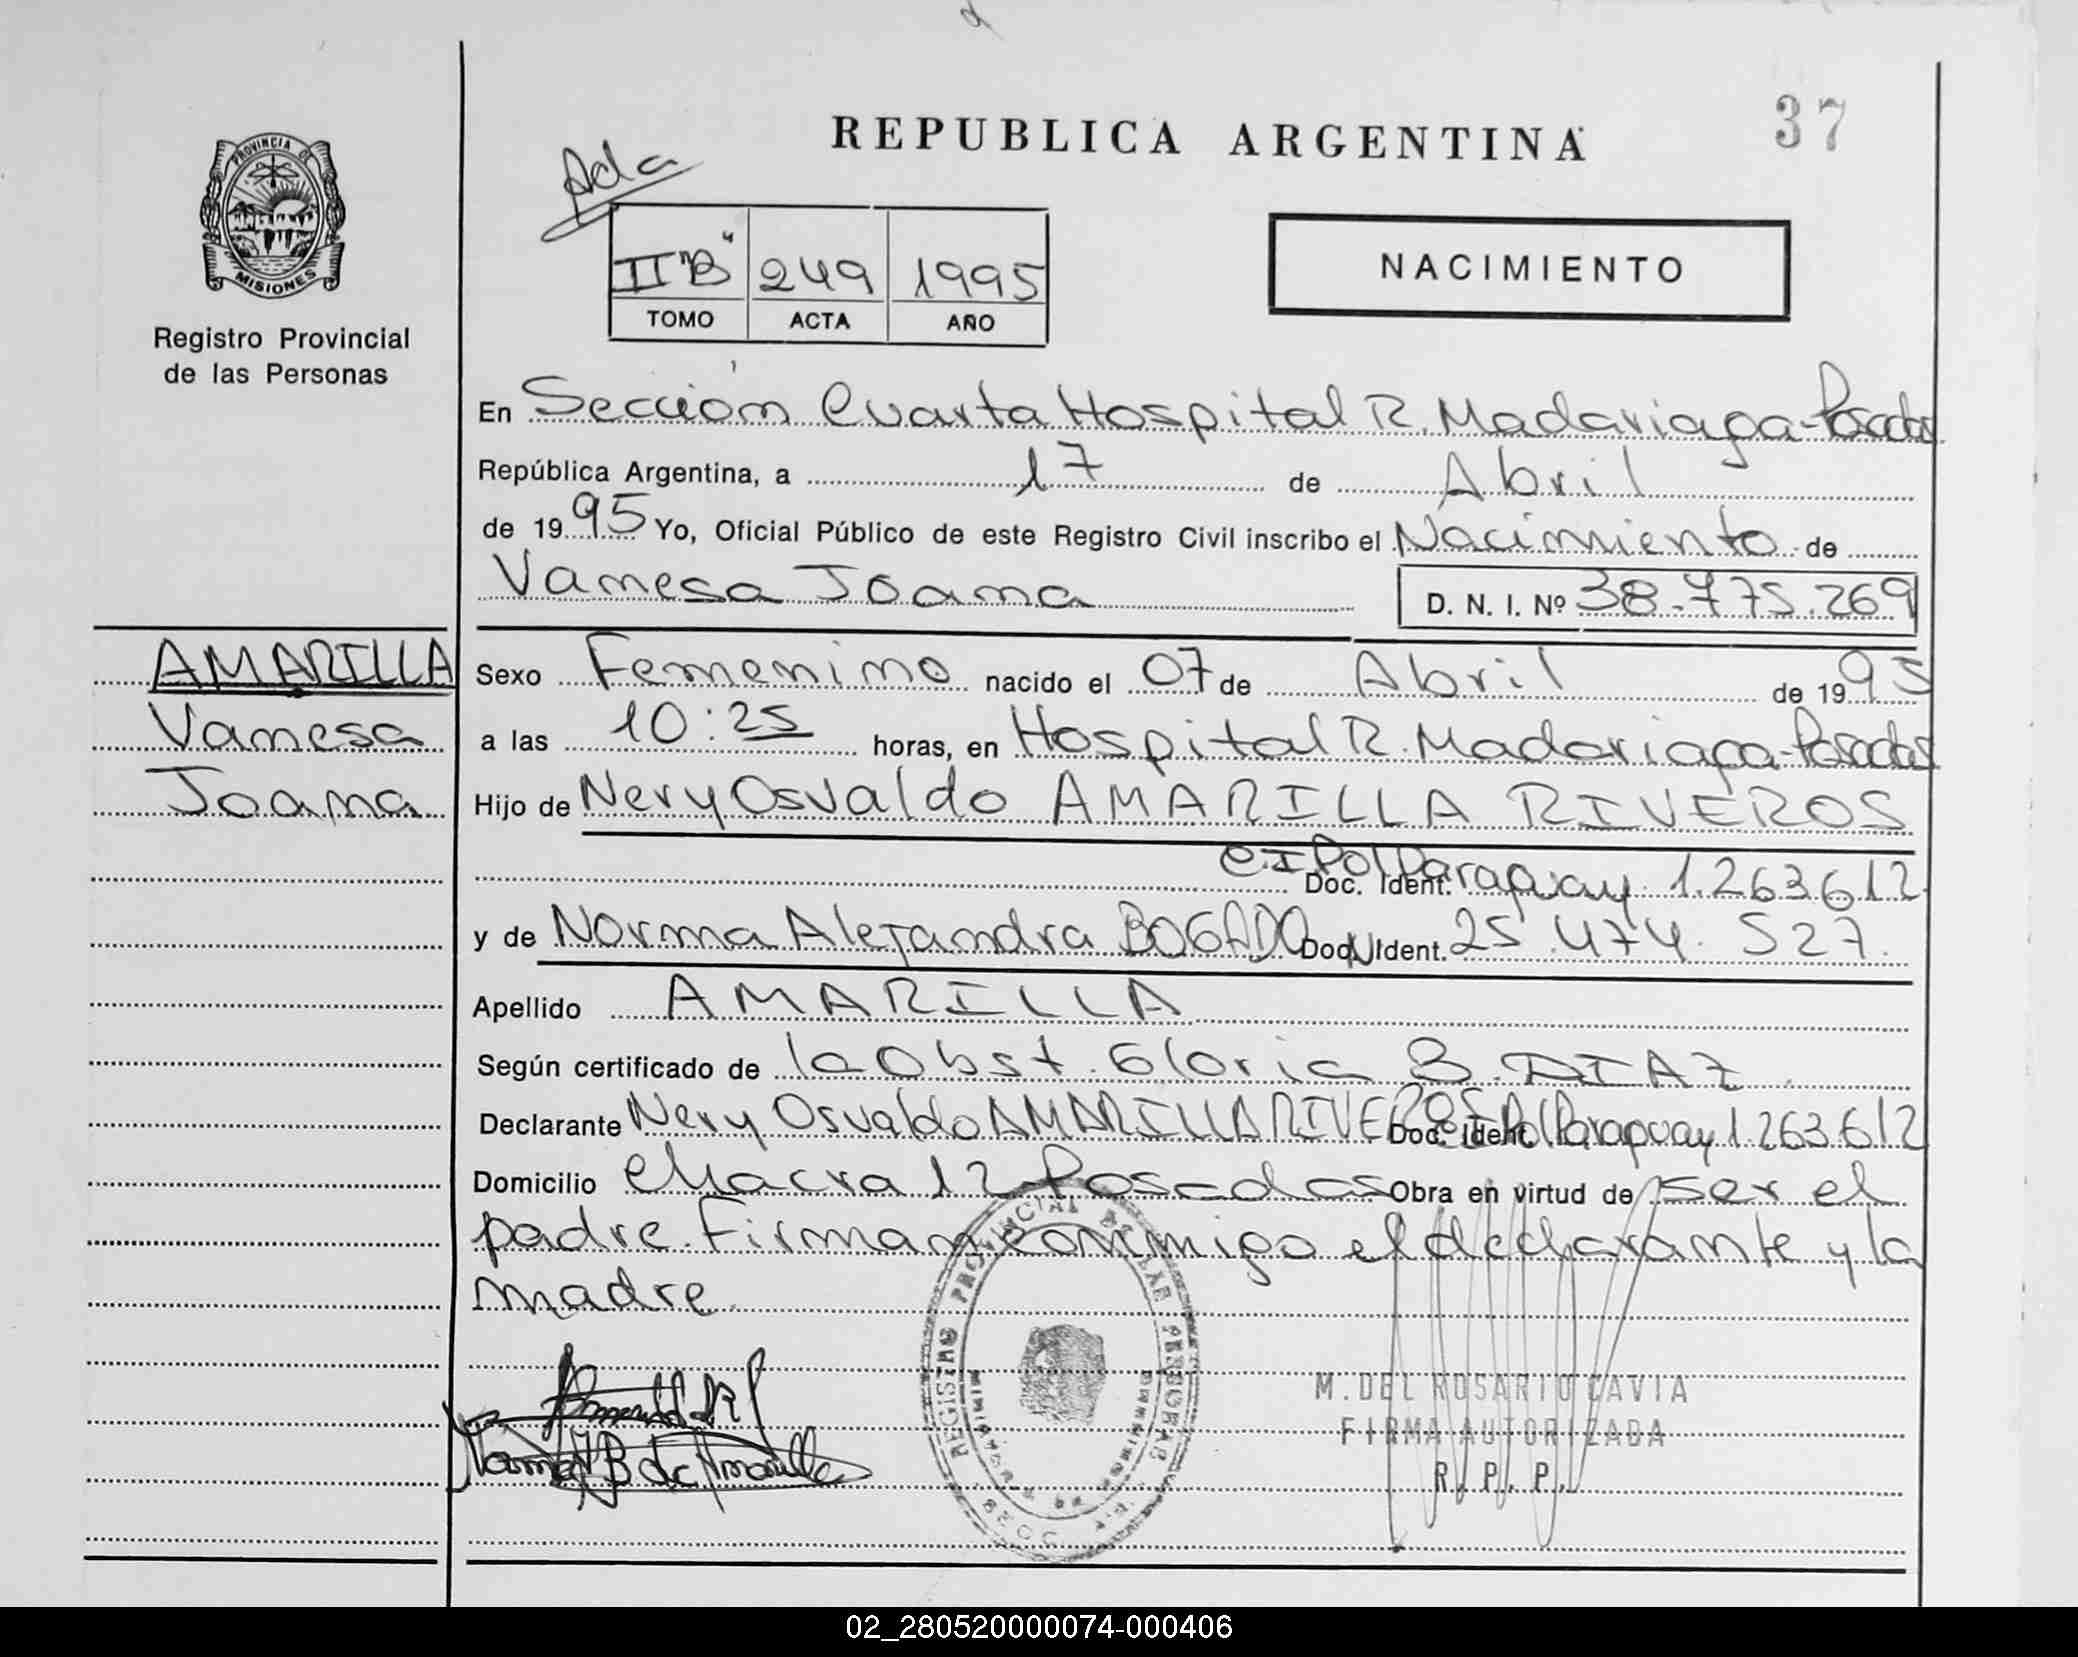 37
REPUBLICA ARGENTINA
PROVINCIA DE
MISIONES
Registro Provincial
de las Personas
II "B" 249 1995
TOMO ACTA AÑO
NACIMIENTO
En Sección Cuarta Hospital R. Madariaga-Posadas
República Argentina, a 17 de Abril
de 1995 Yo, Oficial Público de este Registro Civil inscribo el Nacimiento de
Vanesa Joana
D. N. I. Nº 38.775.269
AMARILLA
Vanesa
Joana
Sexo Femenino nacido el 07 de Abril de 1995
a las 10:25 horas, en Hospital R. Madariaga-Posadas
Hijo de Nery Osvaldo AMARILLA RIVEROS
Doc. Ident. C.I.Pol Paraguay 1.263.612
y de Norma Alejandra BOGADO Doc. Ident. 25.474.527.
Apellido AMARILLA
Según certificado de la Obst. Gloria B. DIAZ
Declarante Nery Osvaldo AMARILLA RIVEROS Doc. Ident. C.I.Pol Paraguay 1.263.612
Domicilio Chacra 12 Posadas Obra en virtud de ser el
padre. Firman conmigo el declarante y la
madre.
REGISTRO PROVINCIAL DE LAS PERSONAS
M. DEL ROSARIO CAVIA
FIRMA AUTORIZADA
R. P. P.
02_280520000074-000406